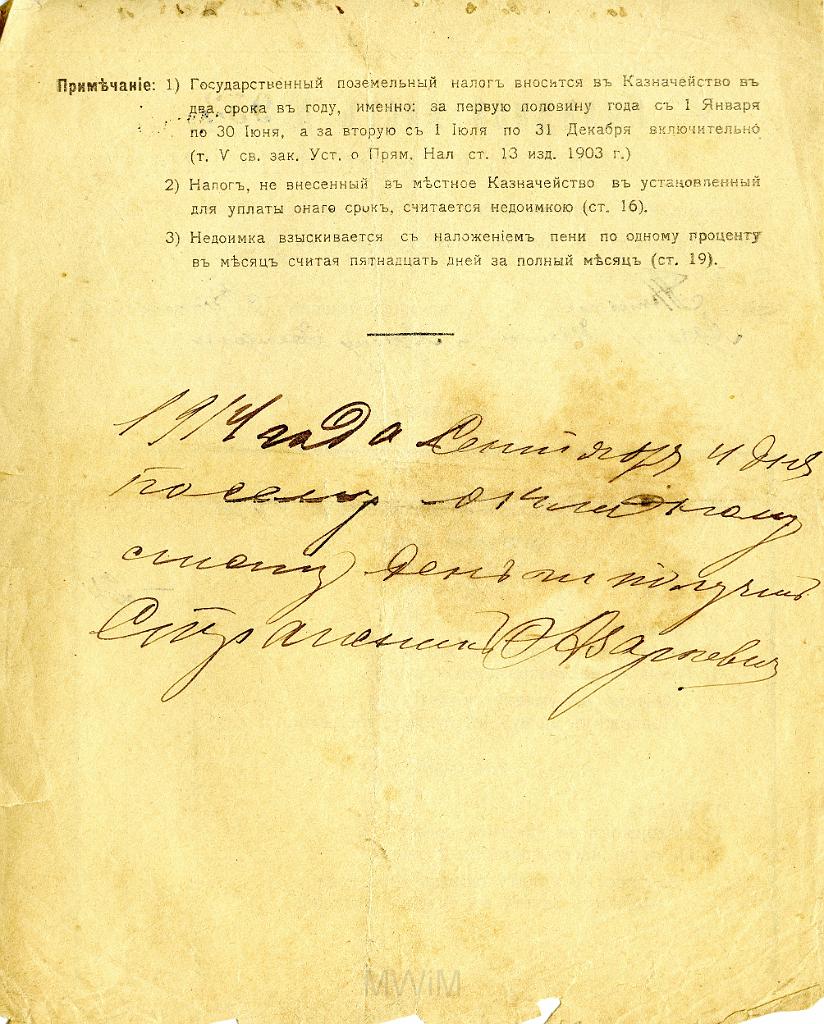 Примѣчаніе: 1) Государственный поземельный налогъ вносится въ Казначейство въ
два срока въ году, именно: за первую половину года съ 1 Января
по 30 Іюня, а за вторую съ 1 Іюля по 31 Декабря включительно
(т. V св. зак. Уст. о Прям. Нал ст. 13 изд. 1903 г.)
2) Налогъ, не внесенный въ мѣстное Казначейство въ установленный
для уплаты онаго срокъ, считается недоимкою (ст. 16).
3) Недоимка взыскивается съ наложеніемъ пени по одному проценту
въ мѣсяцъ считая пятнадцать дней за полный мѣсяцъ (ст. 19).
1914 года Сентября 4 дня
по сему окладному
листу деньги получилъ
Стражникъ Азаркевич
MWiM